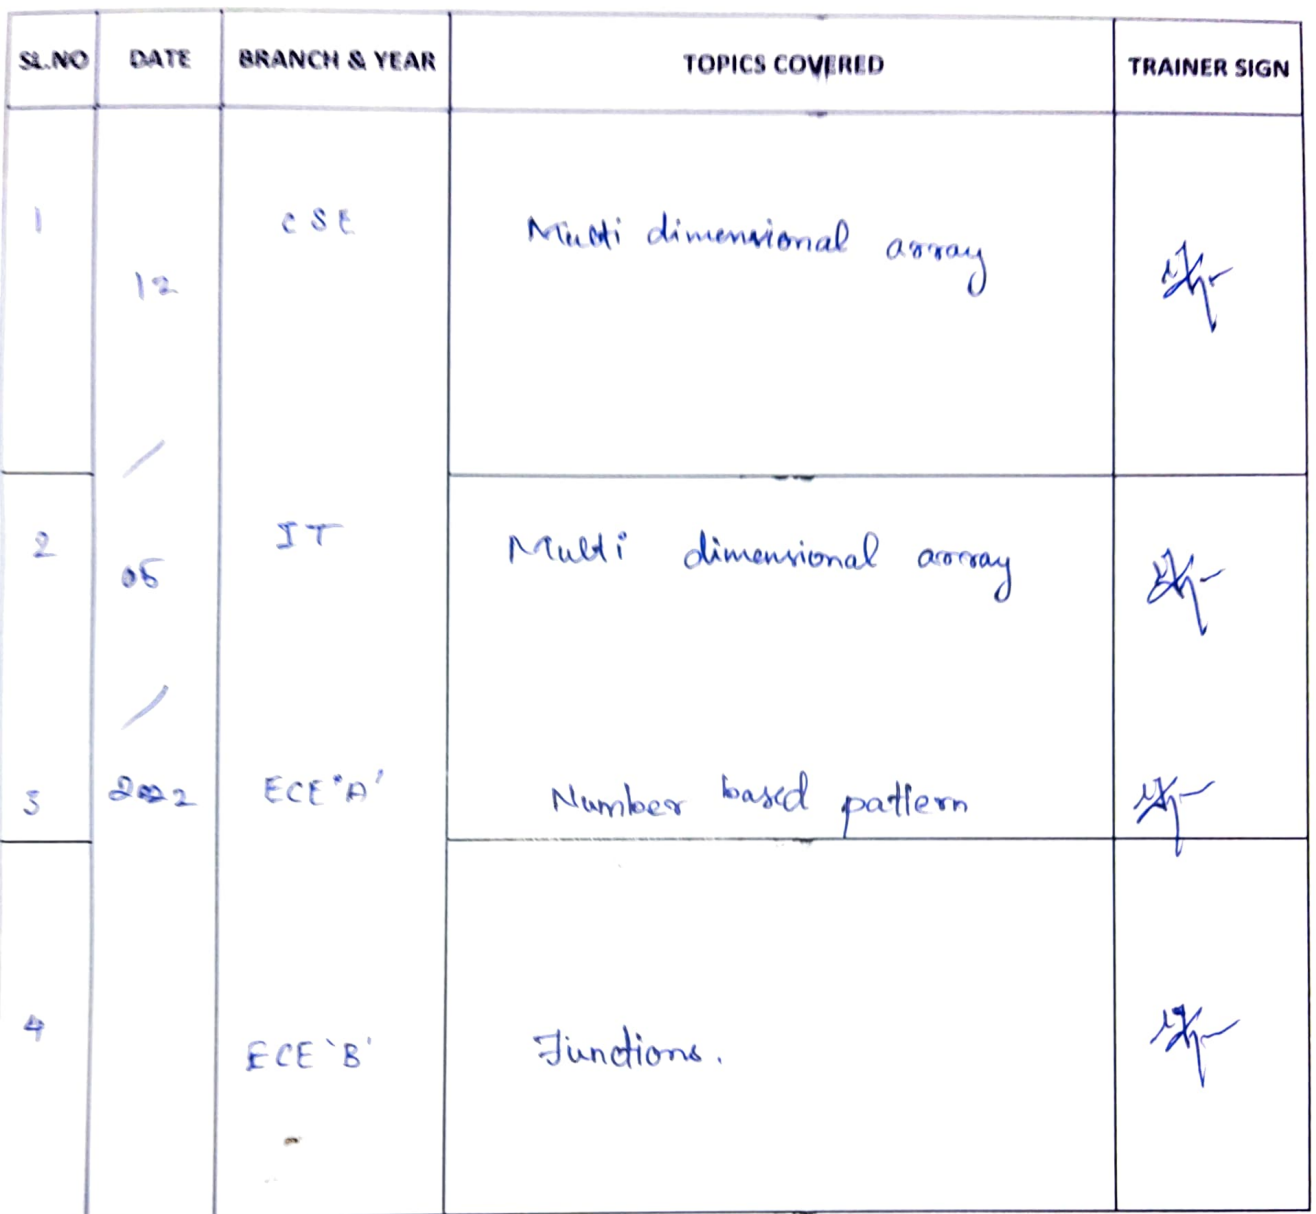 SL.NO DATE BRANCH & YEAR TOPICS COVERED TRAINER SIGN
1 CSE Multi dimensional array
12
/
2 IT Multi dimensional array
05
/
3 2022 ECE 'A' Number based pattern
4 ECE 'B' Functions.